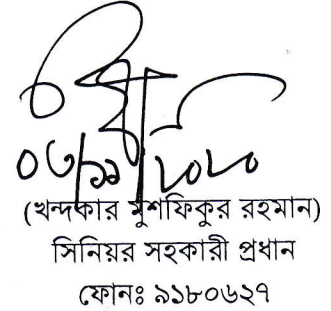 ০৩/১১/২০২০
(খন্দকার মুশফিকুর রহমান)
সিনিয়র সহকারী প্রধান
ফোনঃ ৯১৮০৬২৭